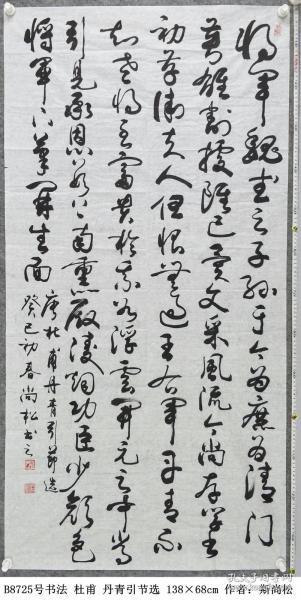 将軍魏武之子孫于今为庶为清门
英雄割據雖已矣文采風流今尚存學书
初學衛夫人但恨無過王右軍丹青不
知老将至富貴於我如浮雲開元之中常
引見承恩數上南熏殿凌烟功臣少顔色
将軍下筆開生面
唐杜甫丹青引節选
癸巳初春尚松书之
B8725号书法 杜甫 丹青引节选 138×68cm 作者：斯尚松